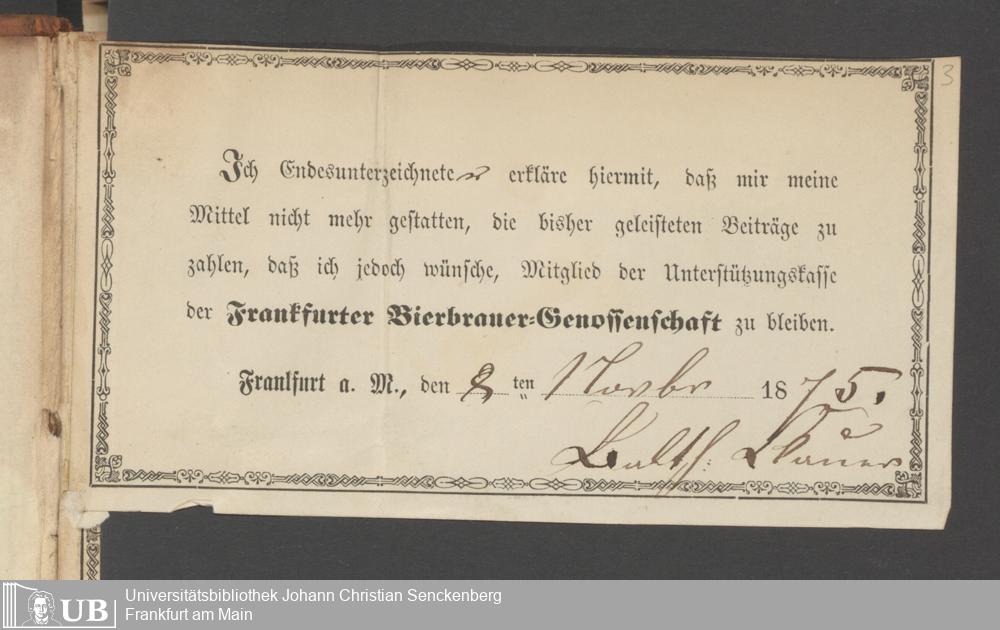 3
Ich Endesunterzeichneter erkläre hiermit, daß mir meine
Mittel nicht mehr gestatten, die bisher geleisteten Beiträge zu
zahlen, daß ich jedoch wünsche, Mitglied der Unterstützungskasse
der Frankfurter Bierbrauer-Genossenschaft zu bleiben.
Frankfurt a. M., den 2 ten Novbr 1875.
Balth:
UB
Universitätsbibliothek Johann Christian Senckenberg
Frankfurt am Main